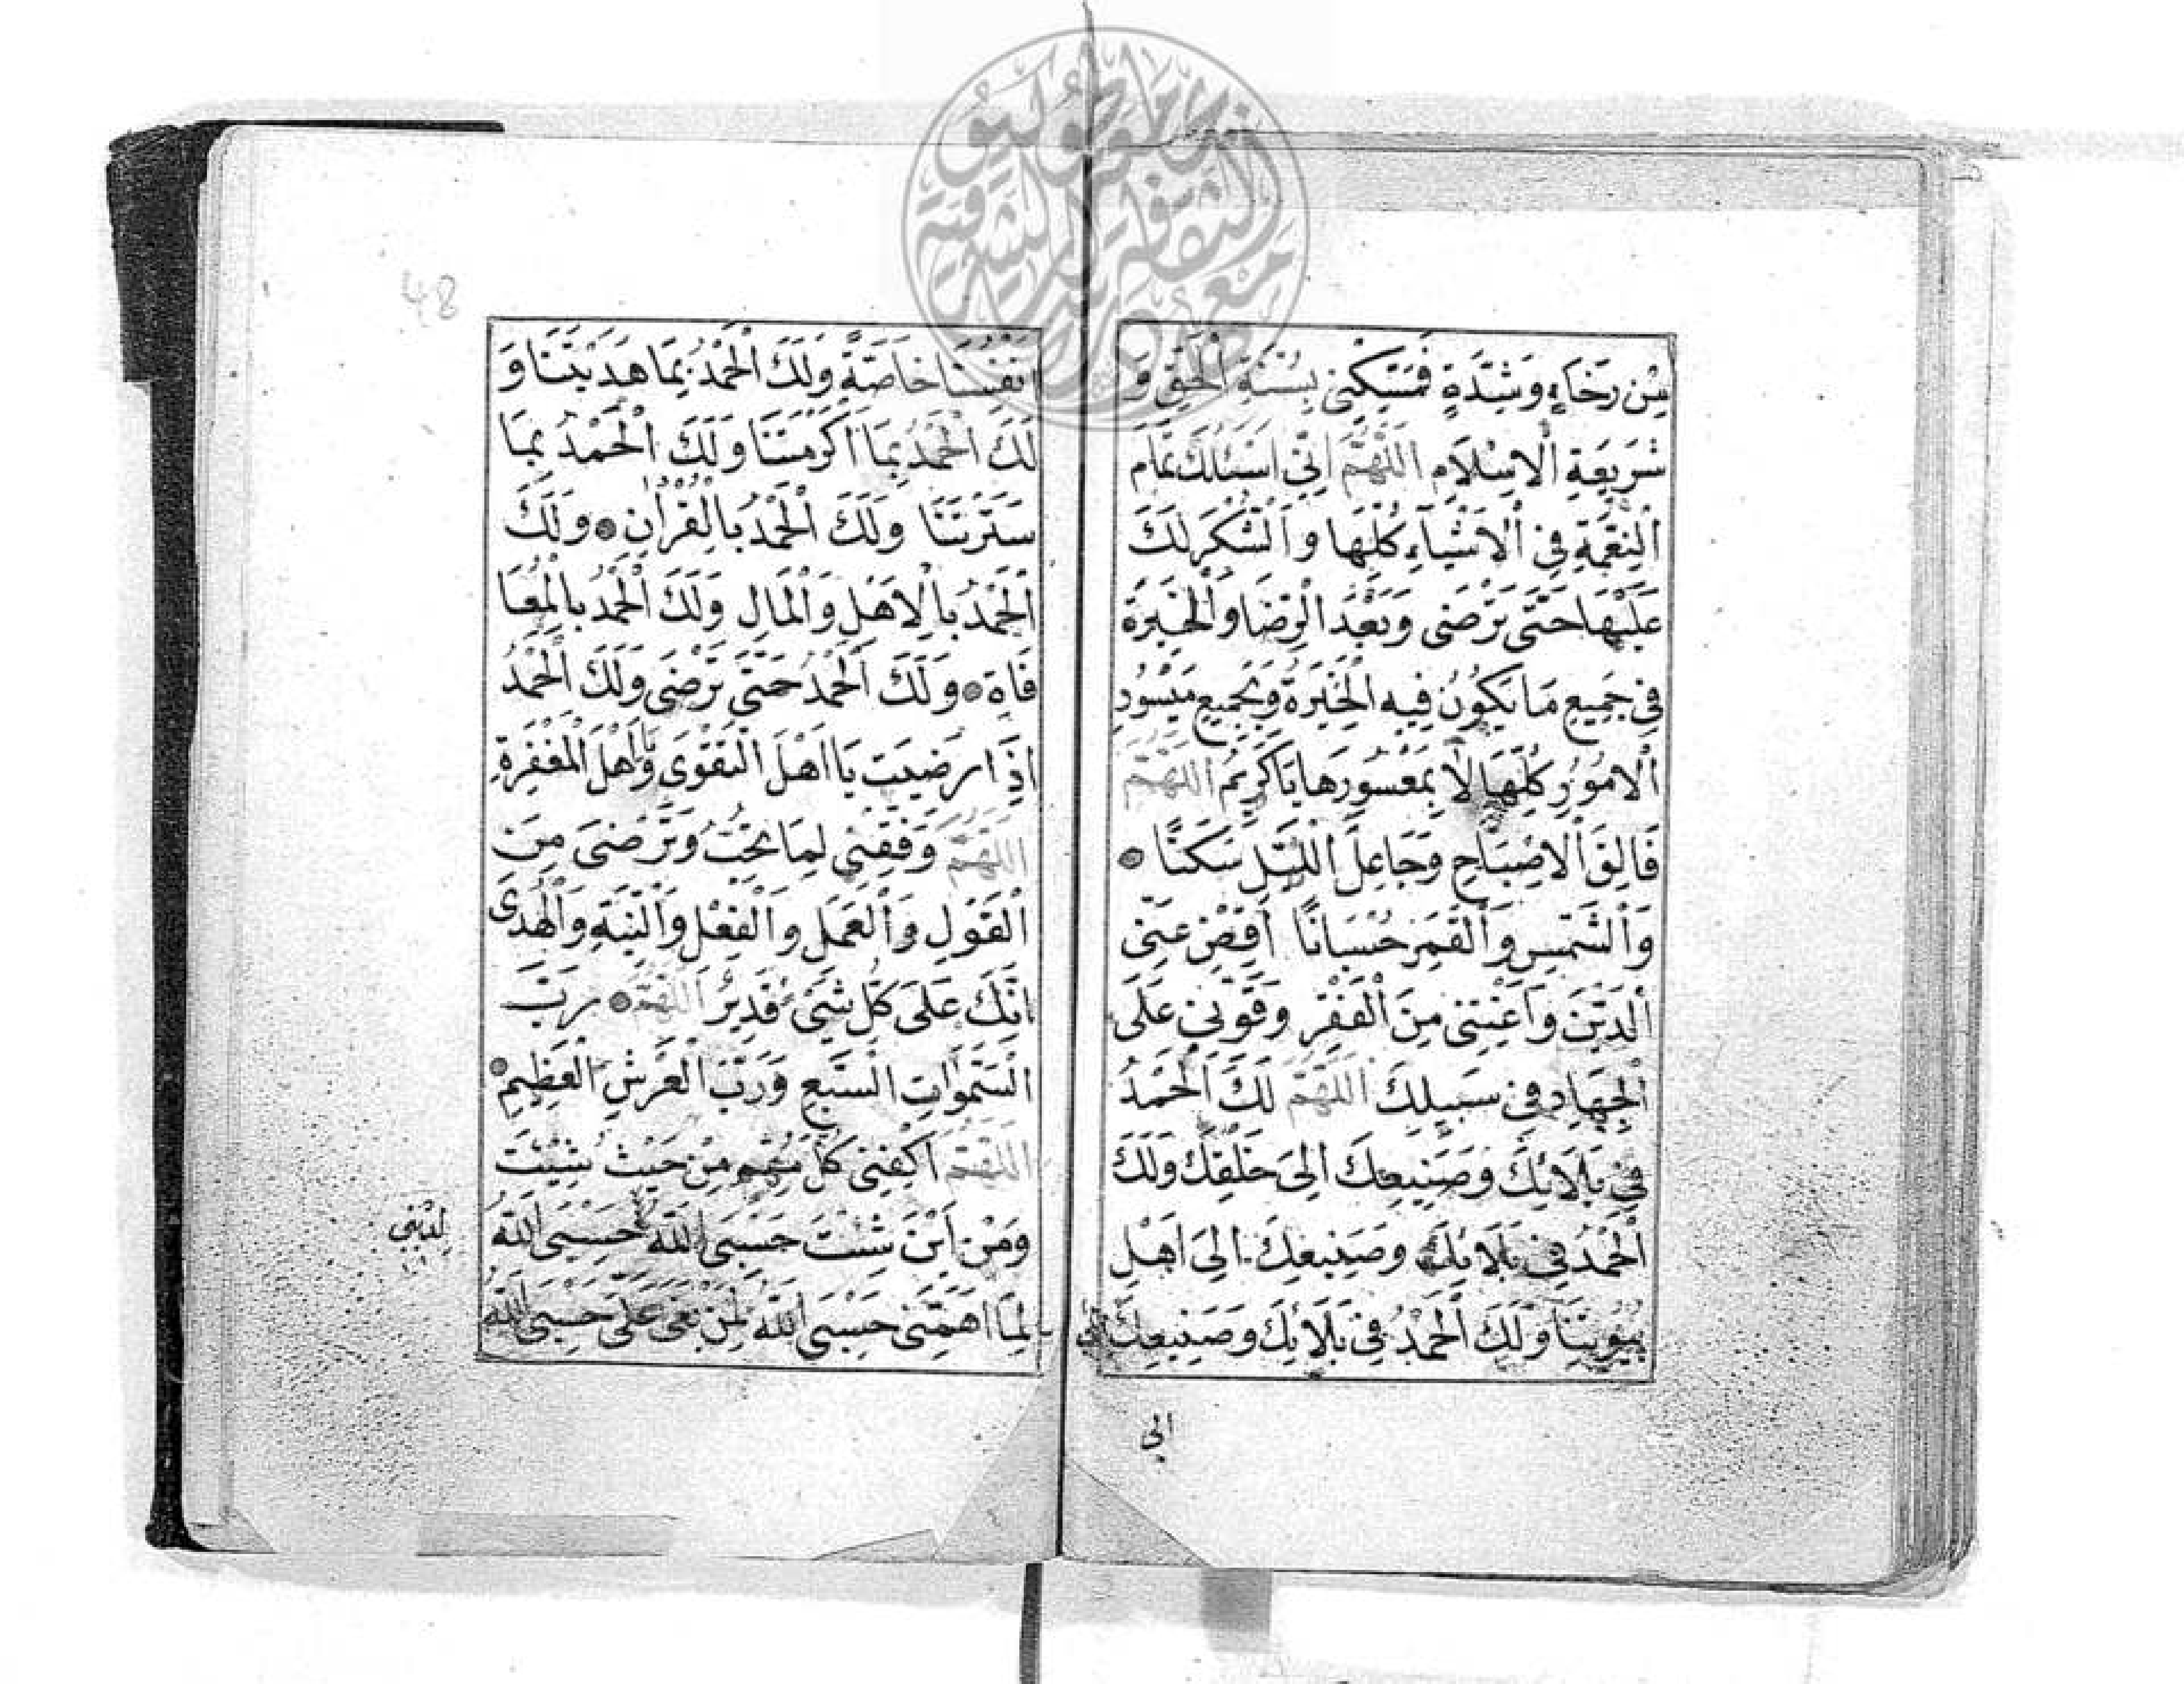 مِنْ رَخَاءٍ وَشِدَّةٍ فَمَسِّكْنِي بِسُنَّةِ الْحَقِّ وَ
شَرِيعَةِ الْاِسْلَامِ اَللّٰهُمَّ اِنِّي اَسْئَلُكَ تَمَامَ
النِّعْمَةِ فِي الْاَشْيَاءِ كُلِّهَا وَالشُّكْرَ لَكَ
عَلَيْهَا حَتَّى تَرْضَى وَبَعْدَ الرِّضَا وَالْخَيَرَةَ
فِي جَمِيعِ مَا يَكُونُ فِيهِ الْخِيَرَةُ وَبِجَمِيعِ مَيْسُورِ
الْاُمُورِ كُلِّهَا لَا بِمَعْسُورِهَا يَا كَرِيمُ اَللّٰهُمَّ
فَالِقَ الْاِصْبَاحِ وَجَاعِلَ اللَّيْلِ سَكَنًا
وَالشَّمْسِ وَالْقَمَرِ حُسْبَانًا اَقْضِ عَنِّي
الدَّيْنَ وَاَغْنِنِي مِنَ الْفَقْرِ وَقَوِّنِي عَلَى
الْجِهَادِ فِي سَبِيلِكَ اَللّٰهُمَّ لَكَ الْحَمْدُ
فِي بَلَائِكَ وَصَنِيعِكَ اِلَى خَلْقِكَ وَلَكَ
الْحَمْدُ فِي بَلَائِكَ وَصَنِيعِكَ اِلَى اَهْلِ
بُيُوتِنَا وَلَكَ الْحَمْدُ فِي بَلَائِكَ وَصَنِيعِكَ اِلَى
الى
48
اَنْفُسِنَا خَاصَّةً وَلَكَ الْحَمْدُ بِمَا هَدَيْتَنَا وَ
لَكَ الْحَمْدُ بِمَا اَكْرَمْتَنَا وَلَكَ الْحَمْدُ بِمَا
سَتَرْتَنَا وَلَكَ الْحَمْدُ بِالْقُرْاٰنِ وَلَكَ
الْحَمْدُ بِالْاَهْلِ وَالْمَالِ وَلَكَ الْحَمْدُ بِالْمُعَا
فَاةِ وَلَكَ الْحَمْدُ حَتَّى تَرْضَى وَلَكَ الْحَمْدُ
اِذَا رَضِيتَ يَا اَهْلَ التَّقْوَى وَيَا اَهْلَ الْمَغْفِرَةِ
اَللّٰهُمَّ وَفِّقْنِي لِمَا تُحِبُّ وَتَرْضَى مِنَ
الْقَوْلِ وَالْعَمَلِ وَالْفِعْلِ وَالنِّيَّةِ وَالْهُدَى
اِنَّكَ عَلَى كُلِّ شَيْءٍ قَدِيرٌ اَللّٰهُمَّ رَبَّ
السَّمٰوَاتِ السَّبْعِ وَرَبَّ الْعَرْشِ الْعَظِيمِ
اَللّٰهُمَّ اكْفِنِي كُلَّ مُهِمٍّ مِنْ حَيْثُ شِئْتَ
وَمِنْ اَيْنَ شِئْتَ حَسْبِيَ اللّٰهُ حَسْبِيَ اللّٰهُ
لِدِينِي
لِمَا اَهَمَّنِي حَسْبِيَ اللّٰهُ لِمَنْ بَغَى عَلَيَّ حَسْبِيَ اللّٰهُ